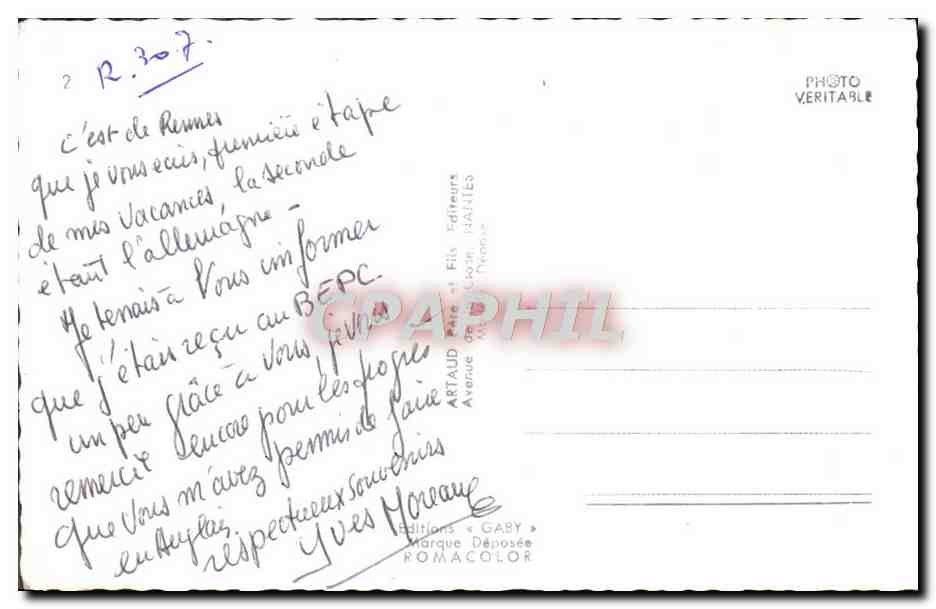 2
R. 30.7.
C'est de Rennes
que je vous écris, première étape
de mes vacances, la seconde
étant l'allemagne -
Je tenais à vous informer
que j'étais reçu au BEPC
un peu grâce à vous, je vous
remercie encore pour les progrès
que vous m'avez permis de faire
en Anglais
respectueux souvenirs
Yves Moreau
PHOTO
VERITABLE
ARTAUD Père et Fils Editeurs
Avenue de la Close NANTES
Déposé
CPAPHIL
Editions « GABY »
Marque Déposée
ROMACOLOR